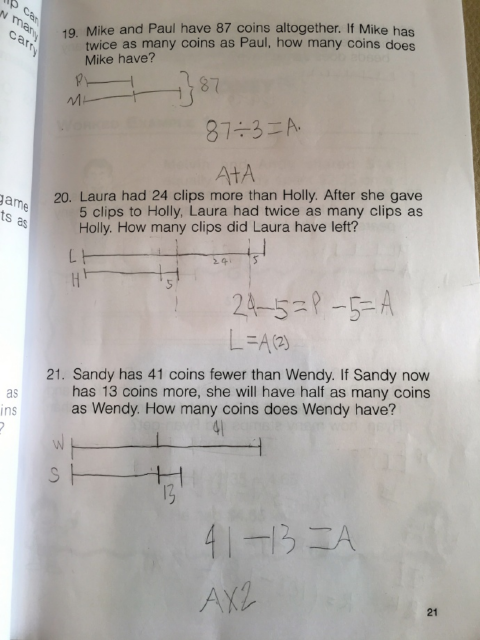 lip can
w many
carry
19. Mike and Paul have 87 coins altogether. If Mike has
twice as many coins as Paul, how many coins does
Mike have?
P
M
87
87÷3=A.
A+A
game
ts as
20. Laura had 24 clips more than Holly. After she gave
5 clips to Holly, Laura had twice as many clips as
Holly. How many clips did Laura have left?
L
24
5
H
5
24-5=P-5=A
L=A(2)
as
ins
?
21. Sandy has 41 coins fewer than Wendy. If Sandy now
has 13 coins more, she will have half as many coins
as Wendy. How many coins does Wendy have?
41
W
S
13
41-13=A
AX2
21